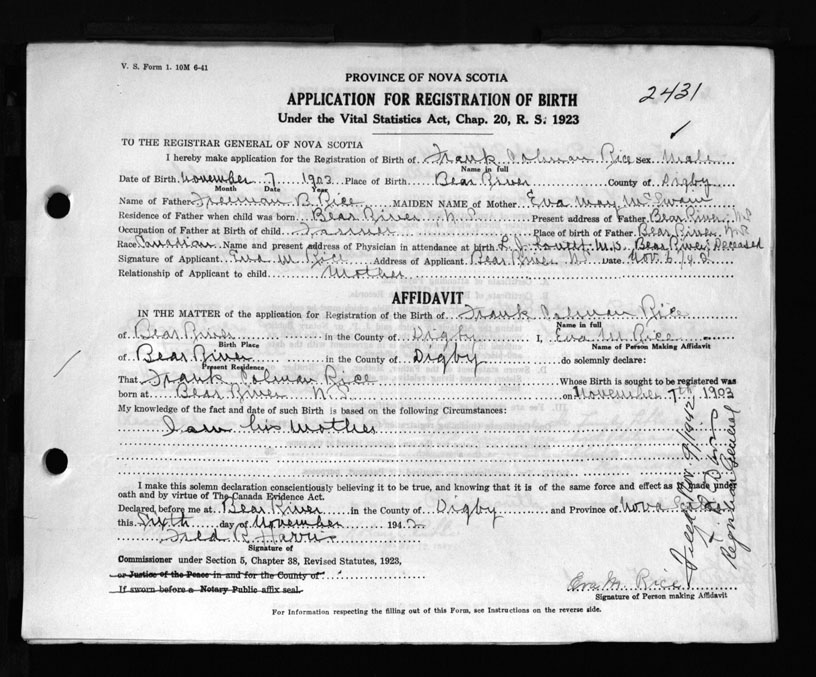 V. S. Form 1. 10M 6-41
PROVINCE OF NOVA SCOTIA
2431
APPLICATION FOR REGISTRATION OF BIRTH
Under the Vital Statistics Act, Chap. 20, R. S. 1923
TO THE REGISTRAR GENERAL OF NOVA SCOTIA
I hereby make application for the Registration of Birth of Frank Colman Rice Sex Male
Name in full
Date of Birth November 7 1903 Place of Birth Bear River County of Digby
Month Date Year
Name of Father Freeman B. Rice MAIDEN NAME of Mother Eva May McEwan
Residence of Father when child was born Bear River N.S. Present address of Father Bear River N.S
Occupation of Father at Birth of child Farmer Place of birth of Father Bear River N.S
Race Canadian Name and present address of Physician in attendance at birth L.J. Lovett M.D. Bear River, Deceased
Signature of Applicant Eva M Rice Address of Applicant Bear River N.S. Date Nov. 6/42
Relationship of Applicant to child Mother
AFFIDAVIT
IN THE MATTER of the application for Registration of the Birth of Frank Colman Rice
Name in full
of Bear River in the County of Digby I, Eva M Rice
Birth Place Name of Person Making Affidavit
of Bear River in the County of Digby do solemnly declare:
Present Residence
That Frank Colman Rice Whose Birth is sought to be registered was
born at Bear River N.S. on November 7th 1903
My knowledge of the fact and date of such Birth is based on the following Circumstances:
I am his Mother
I make this solemn declaration conscientiously believing it to be true, and knowing that it is of the same force and effect as if made under
oath and by virtue of The Canada Evidence Act.
Declared before me at Bear River in the County of Digby and Province of Nova Scotia
this Sixth day of November 1942
Fred R Harris
Signature of
Commissioner under Section 5, Chapter 38, Revised Statutes, 1923,
or Justice of the Peace in and for the County of
If sworn before a Notary Public affix seal.
Eva M. Rice
Signature of Person making Affidavit
For Information respecting the filling out of this Form, see Instructions on the reverse side.
Nov 9/1942
Registrar General